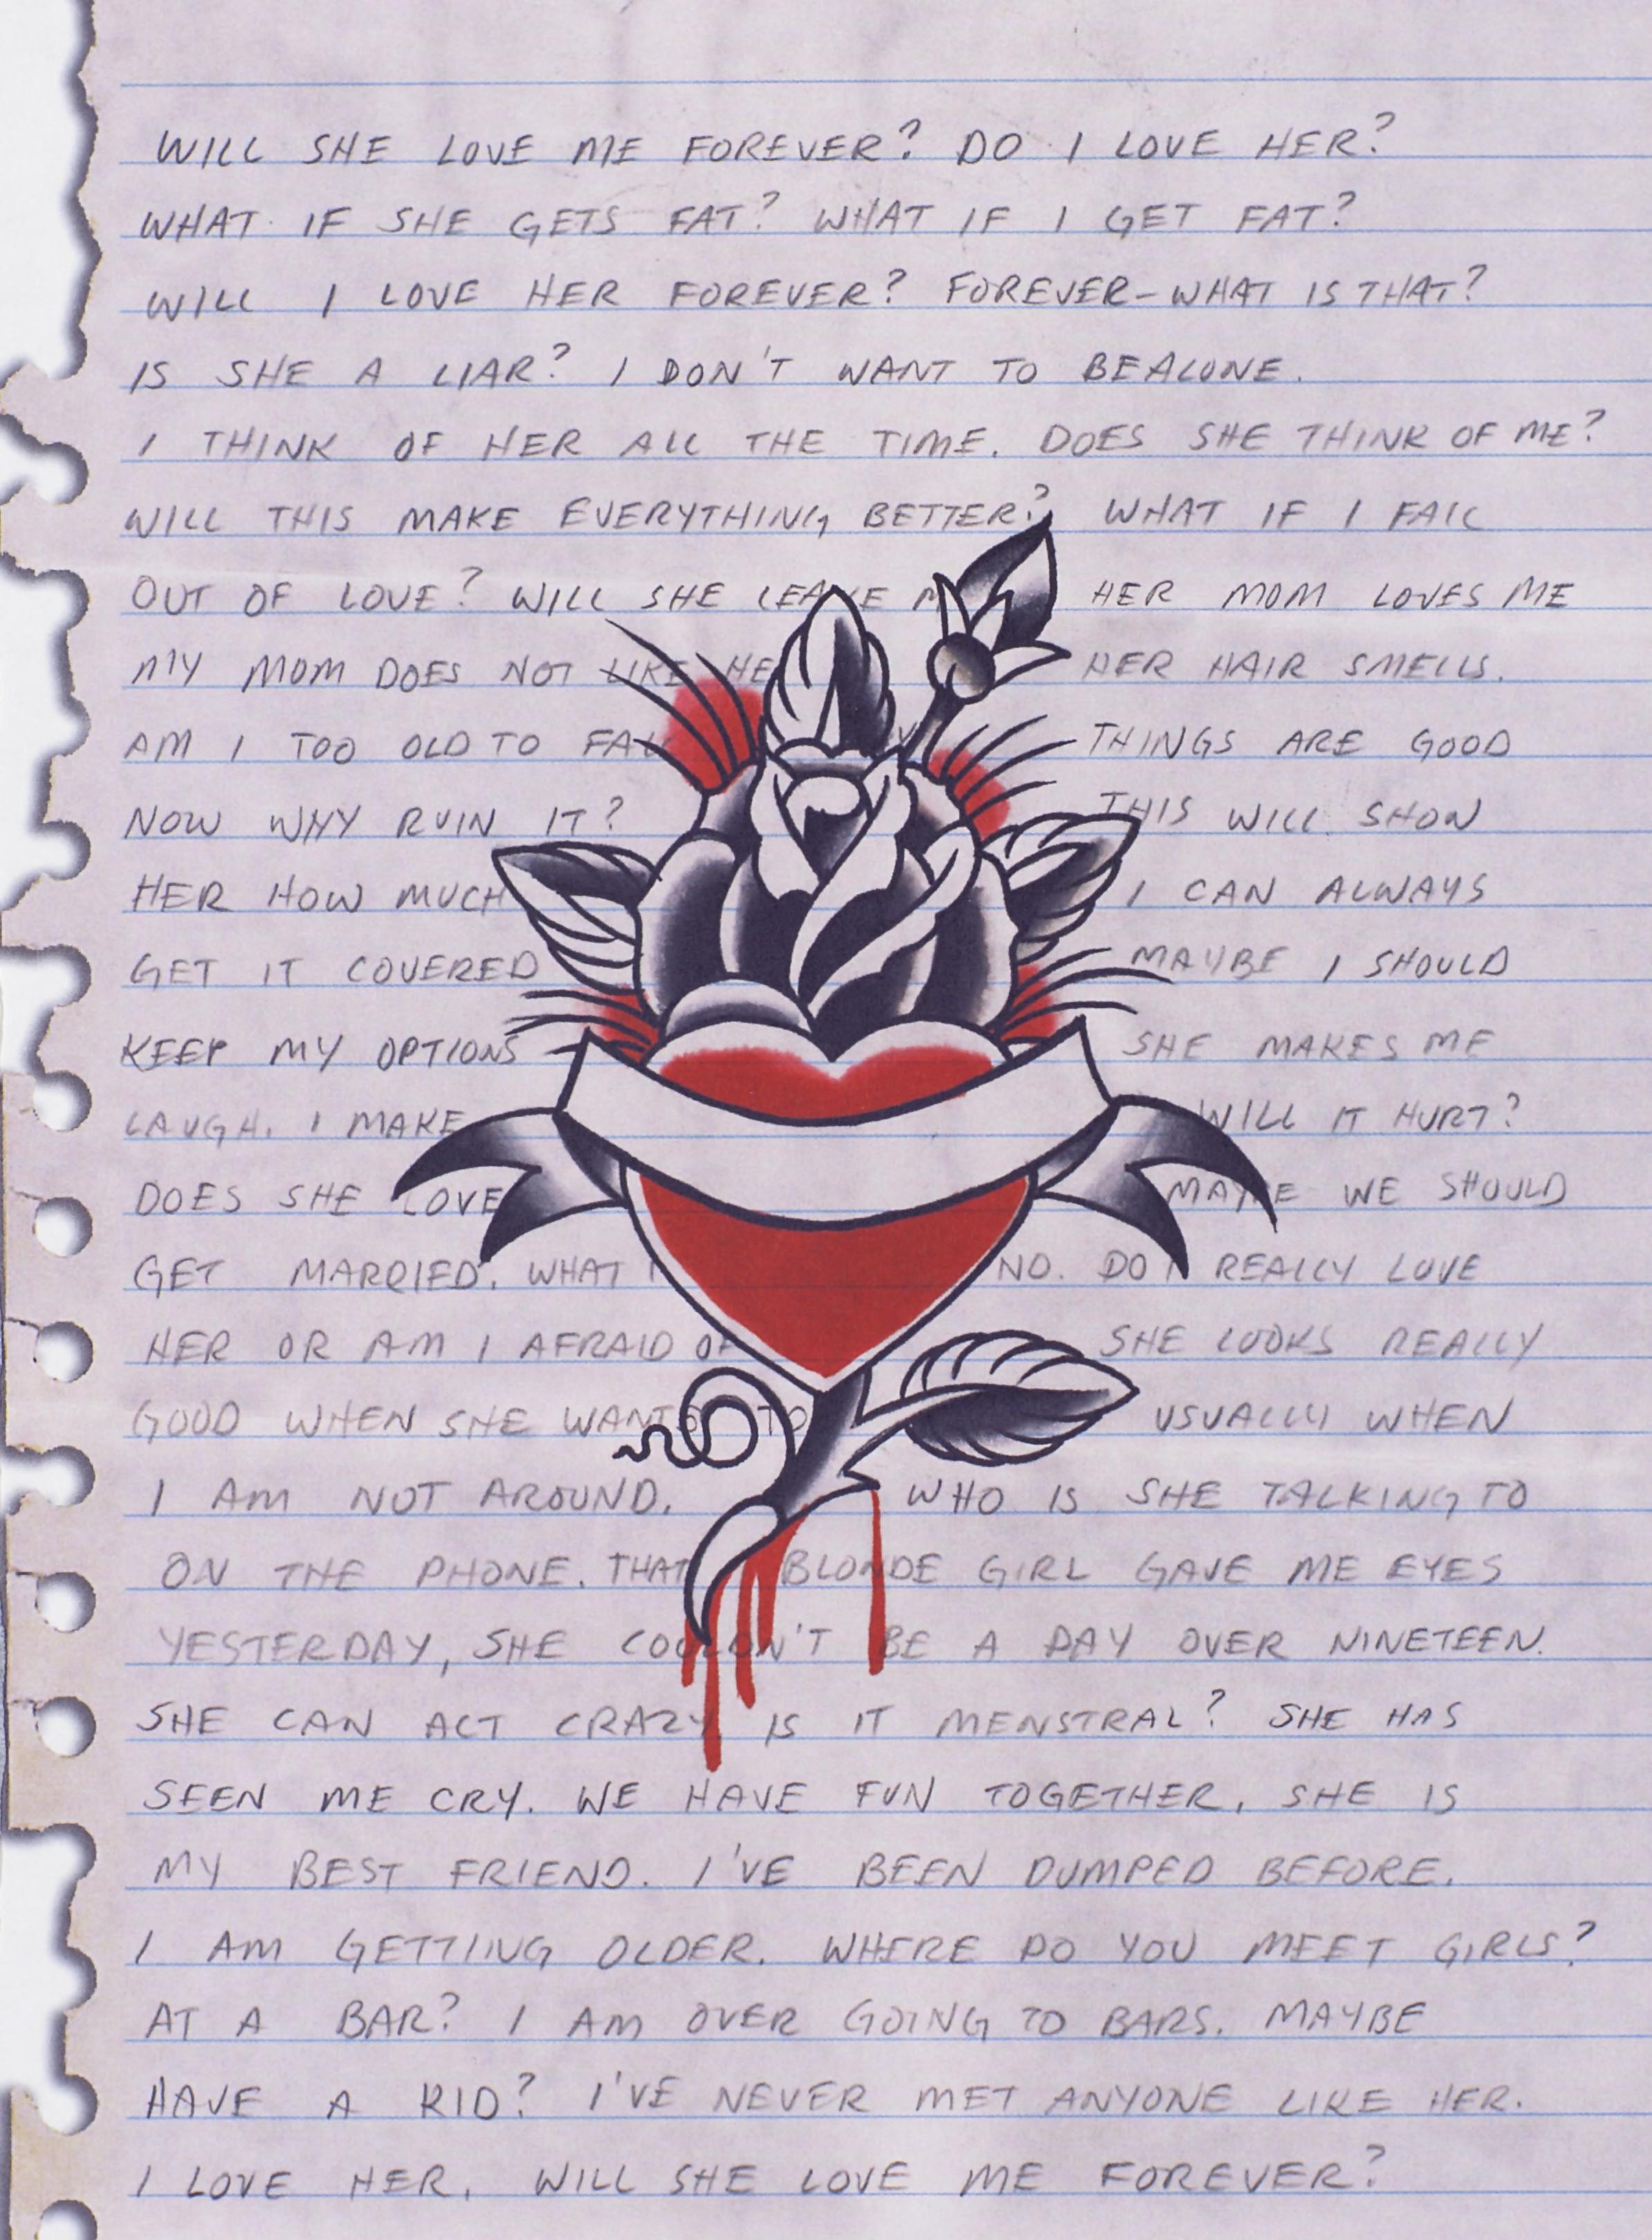 WILL SHE LOVE ME FOREVER? DO I LOVE HER?
WHAT IF SHE GETS FAT? WHAT IF I GET FAT?
WILL I LOVE HER FOREVER? FOREVER-WHAT IS THAT?
IS SHE A LIAR? I DON'T WANT TO BE ALONE.
I THINK OF HER ALL THE TIME. DOES SHE THINK OF ME?
WILL THIS MAKE EVERYTHING BETTER? WHAT IF I FALL
OUT OF LOVE? WILL SHE LEAVE HER MOM LOVES ME
MY MOM DOES NOT LIKE HER HAIR SMELLS.
AM I TOO OLD TO THINGS ARE GOOD
NOW WHY RUIN IT? THIS WILL SHOW
HER HOW MUCH I CAN ALWAYS
GET IT COVERED MAYBE I SHOULD
KEEP MY OPTIONS SHE MAKES ME
LAUGH. I MAKE WILL IT HURT?
DOES SHE LOVE MAYBE WE SHOULD
GET MARRIED. WHAT NO. DO I REALLY LOVE
HER OR AM I AFRAID OF SHE LOOKS REALLY
GOOD WHEN SHE WANTS TO USUALLY WHEN
I AM NOT AROUND. WHO IS SHE TALKING TO
ON THE PHONE. THAT BLONDE GIRL GAVE ME EYES
YESTERDAY, SHE COULDN'T BE A DAY OVER NINETEEN.
SHE CAN ACT CRAZY IS IT MENSTRAL? SHE HAS
SEEN ME CRY. WE HAVE FUN TOGETHER, SHE IS
MY BEST FRIEND. I'VE BEEN DUMPED BEFORE.
I AM GETTING OLDER. WHERE DO YOU MEET GIRLS?
AT A BAR? I AM OVER GOING TO BARS. MAYBE
HAVE A KID? I'VE NEVER MET ANYONE LIKE HER.
I LOVE HER, WILL SHE LOVE ME FOREVER?